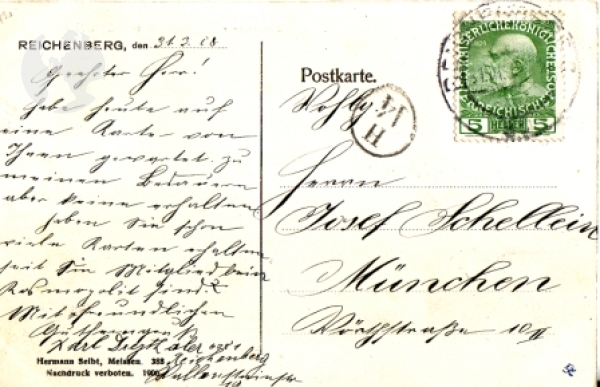 REICHENBERG, den 31.3.08
Geehrter Herr!
habe heute auf
eine Karte von
Ihnen gewartet zu
meinen Bedauern
aber keine erhalten
haben Sie schon
viele Karten erhalten
seit Sie Mitglied beim
Kosmopolit sind?
Mit freundlichen
Karl
Reichenberg
Hermann Seibt, Meissen. 355
Nachdruck verboten. 1906
Postkarte.
KAISERLICHE KÖNIGLICHE
ÖSTERREICHISCHE
5 HELLER 5
H
14
Herrn
Josef Schellein
München
Wörthstraße 10 II